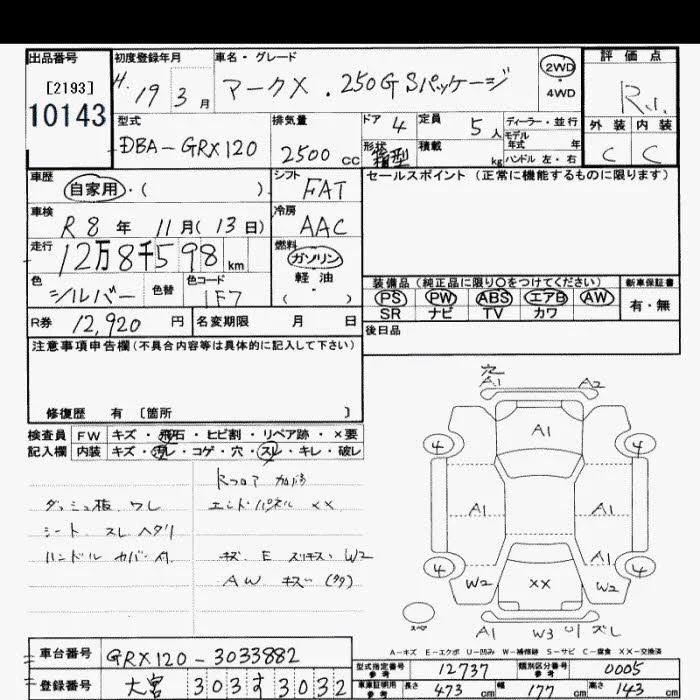 出品番号 初度登録年月 車名・グレード 評価点
[2193] H. 19年 3月 マークX . 250G Sパッケージ 2WD
10143 4WD R1.
型式 排気量 ドア 4 定員 5人 ディーラー・並行 外装 内装
DBA-GRX120 2500 CC 形状 箱型 積載 kg モデル年式 年 C C
ハンドル 左・右
車歴 シフト セールスポイント (正常に機能するものに限ります)
自家用・( ) FAT
車検 冷房
R8年 11月(13日) AAC
走行 燃料
12万8千598km ガソリン
色 色替 色コード 軽油
シルバー 1F7 ( )
装備品 (純正品に限り○をつけてください) 新車保証書
PS PW ABS エアB AW 有・無
SR ナビ TV カワ
R券 12,920円 名変期限 月 日 後日品
注意事項申告欄(不具合内容等は具体的に記入して下さい)
修復歴 有 [箇所 ]
検査員 FW キズ・飛石・ヒビ割・リペア跡・×要
記入欄 内装 キズ・汚レ・コゲ・穴・スレ・キレ・破レ
Rフロア
ダッシュ板 ワレ エンドパネル ××
シート スレ ヘタリ
ハンドル カバー付 キズ E スリキズ W2
AW キズ
穴
A1 A2
A1
4 4
A1 A1
A1
4 4
W2 ×× W2
スペア A1 W3 U1 ズレ
A-キズ E-エクボ U-凹み W-補修跡 S-サビ C-腐食 XX-交換済
車台番号 GRX120-3033882
登録番号 大宮 303 す 3032
型式指定番号 参考 12737 類別区分番号 参考 0005
車庫証明用 参考 長さ 473 cm 幅 177 cm 高さ 143 cm